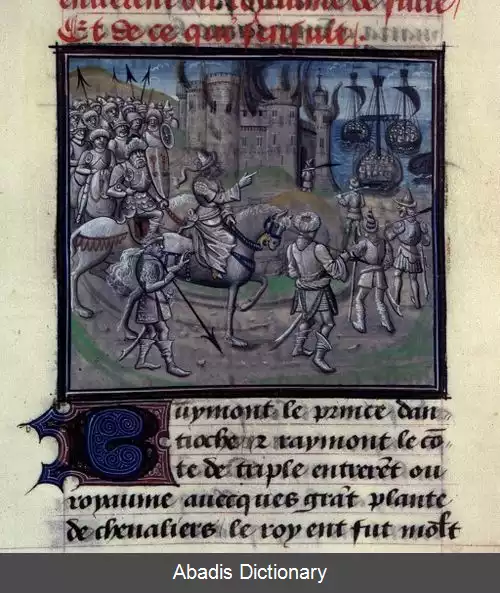 entrerent ou royaume de surie
Et de ce quil sensuit.
Buymont le prince dan
tioche ⁊ raymont le cō
te de triple entrerēt ou
royaume auecques grāt plante
de cheualiers le roy ent fut mōlt
Abadis Dictionary